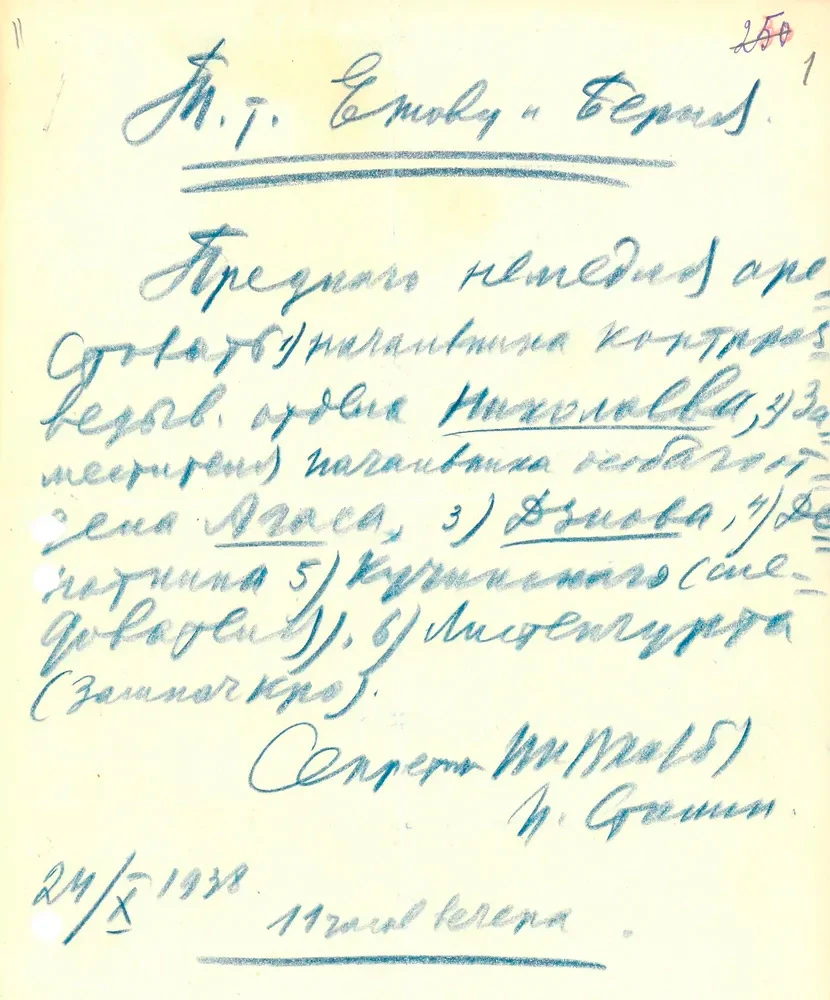 250
1
Т.т. Ежову и Берия.
Предлагаю немедля аре-
стовать 1) начальника контрраз-
ведыв. отдела Николаева, 2) за-
местителя начальника особого от-
дела Агаса, 3) Дзиова, 4)
5) Кучинского (сле-
дователя), 6) Листенгурта
(замначкро).
Секретарь ЦК ВКП(б)
И. Сталин.
24/X 1938
11 часов вечера.